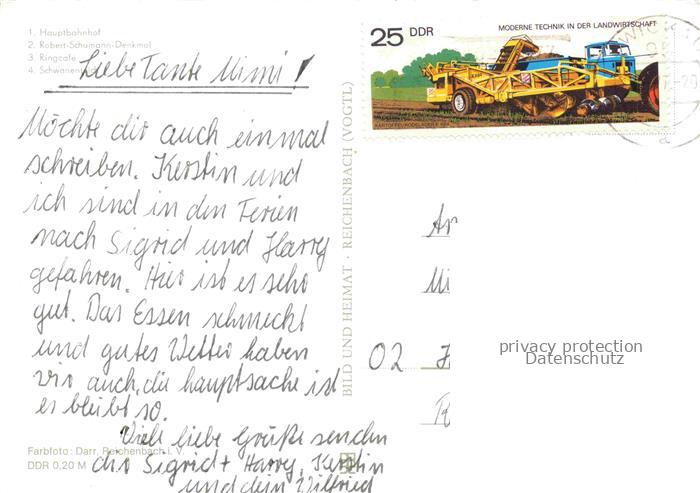 1. Hauptbahnhof
2. Robert-Schumann-Denkmal
3. Ringcafé
4. Schwanen
Liebe Tante Mimi!
Möchte dir auch einmal
schreiben. Kerstin und
ich sind in den Ferien
nach Sigrid und Harry
gefahren. Hier ist es sehr
gut. Das Essen schmeckt
und gutes Wetter haben
wir auch, die hauptsache ist
es bleibt so.
Viele liebe Grüße senden
dir Sigrid + Harry, Kerstin
und dein Wilfried
Farbfoto: Darr, Reichenbach i. V.
DDR 0,20 M
BILD UND HEIMAT · REICHENBACH (VOGTL)
25 DDR
MODERNE TECHNIK IN DER LANDWIRTSCHAFT
An
Mi
02
privacy protection
Datenschutz